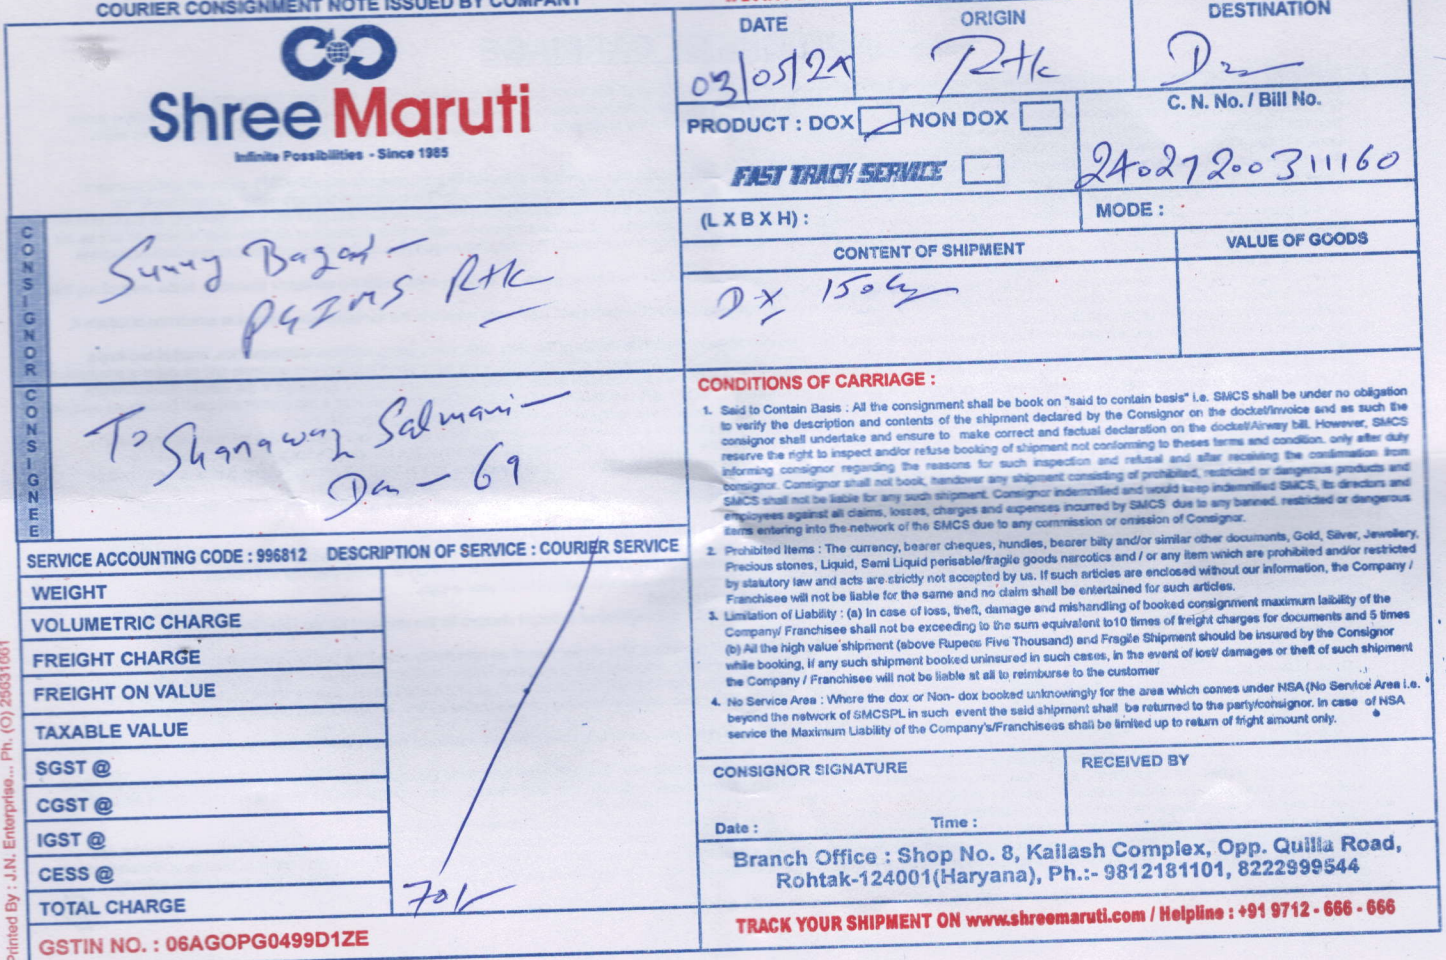 COURIER CONSIGNMENT NOTE ISSUED BY COMPANY
Shree Maruti
Infinite Possibilities - Since 1985
DATE
03/05/24
ORIGIN
Rtk
DESTINATION
PRODUCT : DOX NON DOX
FAST TRACK SERVICE
C. N. No. / Bill No.
24027200311160
(L X B X H) :
MODE :
CONTENT OF SHIPMENT
VALUE OF GOODS
DX
CONSIGNOR
Sunny
PGIMS Rtk
CONSIGNEE
To
Shanawaz Salmani
69
SERVICE ACCOUNTING CODE : 996812 DESCRIPTION OF SERVICE : COURIER SERVICE
WEIGHT
VOLUMETRIC CHARGE
FREIGHT CHARGE
FREIGHT ON VALUE
TAXABLE VALUE
SGST @
CGST @
IGST @
CESS @
TOTAL CHARGE
70/-
GSTIN NO. : 06AGOPG0499D1ZE
Printed By : J.N. Enterprise... Ph. (O) 25031661
CONDITIONS OF CARRIAGE :
1. Said to Contain Basis : All the consignment shall be book on "said to contain basis" i.e. SMCS shall be under no obligation
to verify the description and contents of the shipment declared by the Consignor on the docket/invoice and as such the
consignor shall undertake and ensure to make correct and factual declaration on the docket/Airway bill. However, SMCS
reserve the right to inspect and/or refuse booking of shipment not conforming to theses terms and condition. only after duly
informing consignor regarding the reasons for such inspection and refusal and after receiving the confirmation from
consignor. Consignor shall not book, handover any shipment consisting of prohibited, restricted or dangerous products and
SMCS shall not be liable for any such shipment. Consignor indemnified and would keep indemnified SMCS, its directors and
employees against all claims, losses, charges and expenses incurred by SMCS due to any banned, restricted or dangerous
items entering into the network of the SMCS due to any commission or omission of Consignor.
2. Prohibited Items : The currency, bearer cheques, hundies, bearer bilty and/or similar other documents, Gold, Silver, Jewellery,
Precious stones, Liquid, Semi Liquid perisable/fragile goods narcotics and / or any item which are prohibited and/or restricted
by statutory law and acts are strictly not accepted by us. If such articles are enclosed without our information, the Company /
Franchisee will not be liable for the same and no claim shall be entertained for such articles.
3. Limitation of Liability : (a) In case of loss, theft, damage and mishandling of booked consignment maximum laibility of the
Company/ Franchisee shall not be exceeding to the sum equivalent to10 times of freight charges for documents and 5 times
(b) All the high value shipment (above Rupees Five Thousand) and Fragile Shipment should be insured by the Consignor
while booking, if any such shipment booked uninsured in such cases, in the event of lost/ damages or theft of such shipment
the Company / Franchisee will not be liable at all to reimburse to the customer
4. No Service Area : Where the dox or Non- dox booked unknowingly for the area which comes under NSA (No Service Area i.e.
beyond the network of SMCSPL in such event the said shipment shall be returned to the party/consignor. In case of NSA
service the Maximum Liability of the Company's/Franchiseas shall be limited up to return of fright amount only.
CONSIGNOR SIGNATURE
RECEIVED BY
Date : Time :
Branch Office : Shop No. 8, Kailash Complex, Opp. Quilla Road,
Rohtak-124001(Haryana), Ph.:- 9812181101, 8222999544
TRACK YOUR SHIPMENT ON www.shreemaruti.com / Helpline : +91 9712 - 666 - 666